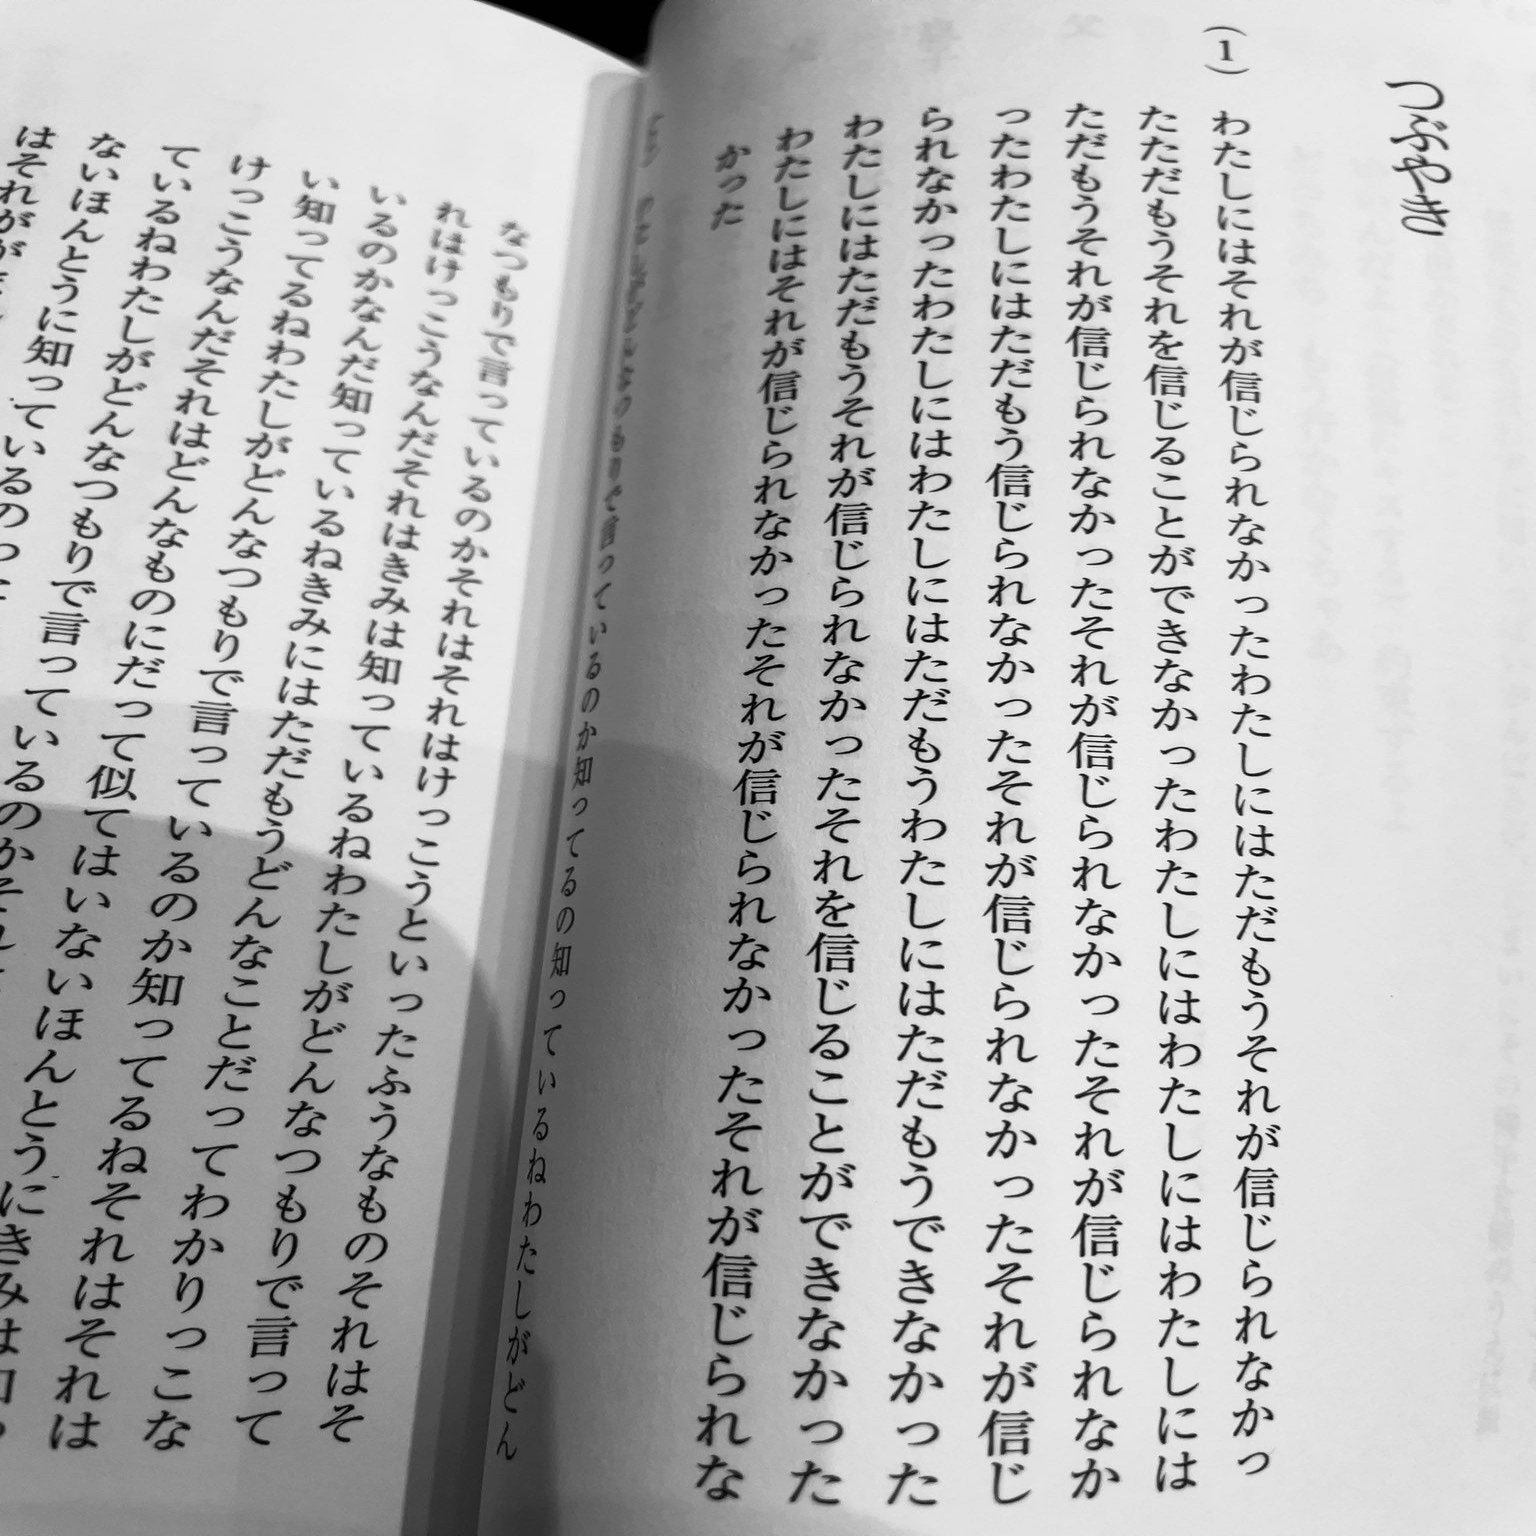 つぶやき
(1)
わたしにはそれが信じられなかったわたしにはただもうそれが信じられなかっ
たただもうそれを信じることができなかったわたしにはわたしにはわたしには
ただもうそれが信じられなかったそれが信じられなかったそれが信じられなか
ったわたしにはただもう信じられなかったそれが信じられなかったそれが信じ
られなかったわたしにはわたしにはただもうわたしにはただもうできなかった
わたしにはただもうそれが信じられなかったそれを信じることができなかった
わたしにはそれが信じられなかったそれが信じられなかったそれが信じられな
かった
つもりで言っているのか知ってるの知っているねわたしがどん
なつもりで言っているのかそれはそれはけっこうといったふうなものそれはそ
れはけっこうなんだそれはきみは知っているねわたしがどんなつもりで言って
いるのかなんだ知っているねきみにはただもうどんなことだってわかりっこな
い知ってるねわたしがどんなつもりで言っているのか知ってるねそれはそれは
けっこうなんだそれはどんなものにだって似てはいないほんとうにきみは知っ
ているねわたしがどんなつもりで言っているのかそれ
ないほんとうに知っているの
はそれが